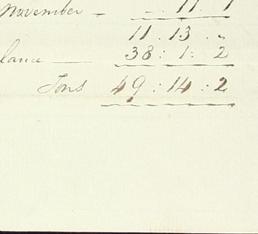 November - - 11 1
11 . 13 . "
lance 38 : 1 : 2
Tons 49 : 14 : 2